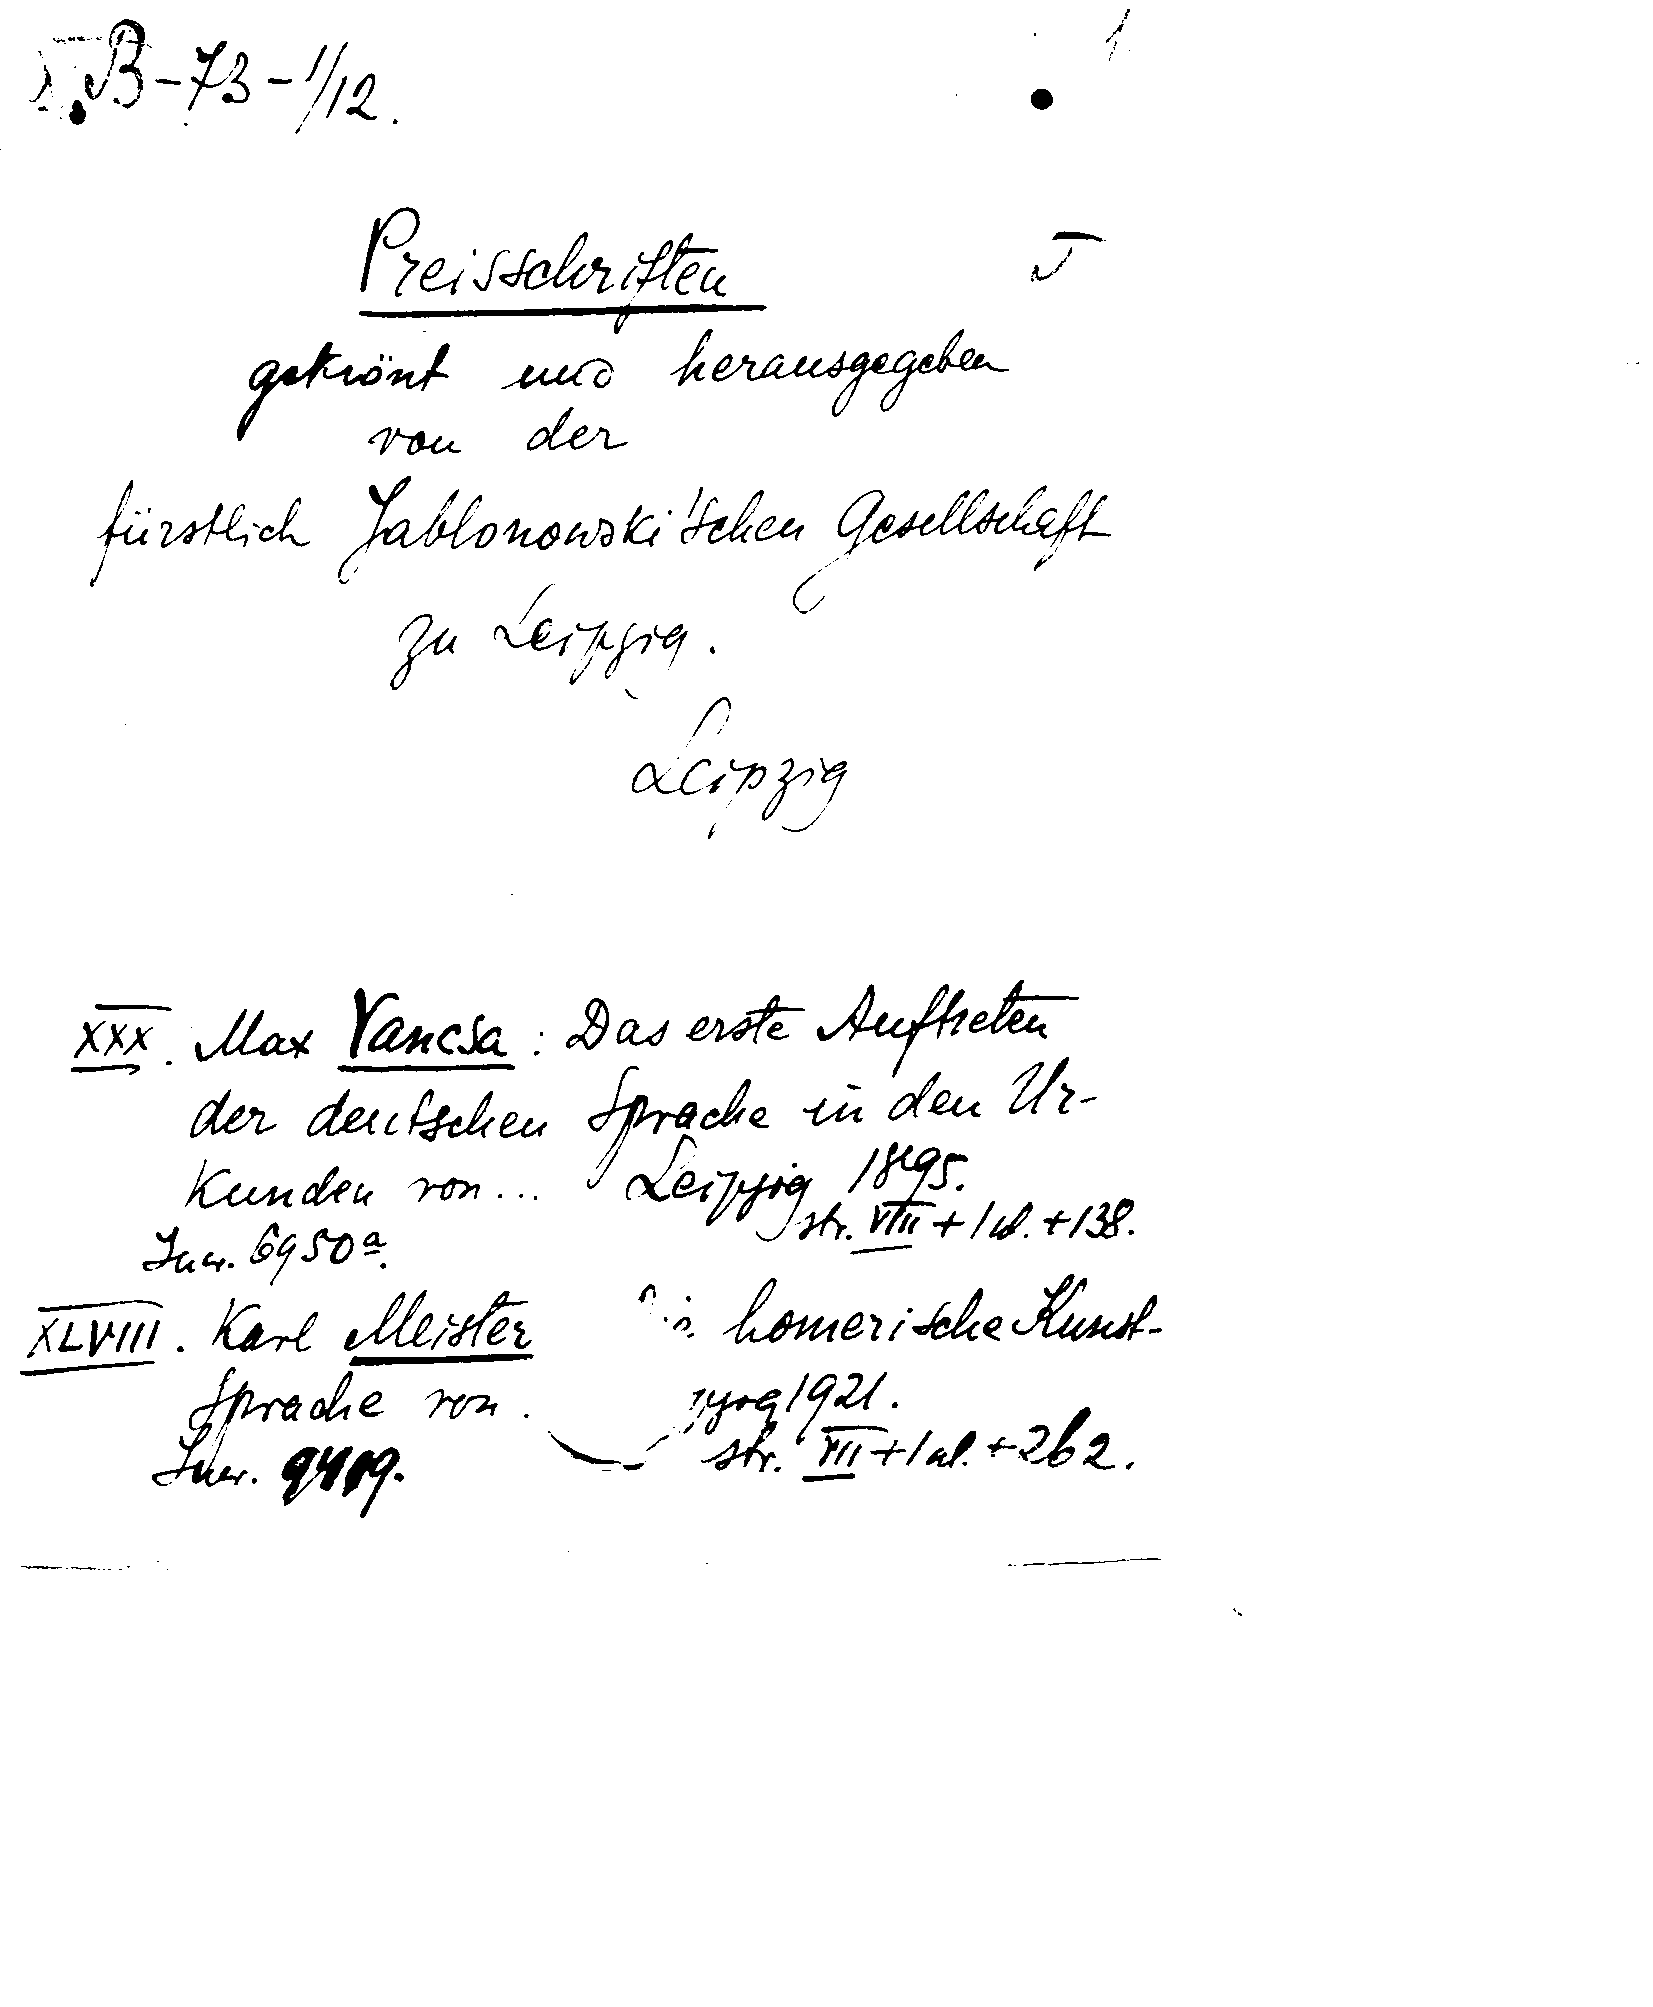 B-73-1/12.
Preisschriften
gekrönt und herausgegeben
von der
fürstlich Jablonowski'schen Gesellschaft
zu Leipzig.
Leipzig
XXX. Max Vancsa: Das erste Auftreten
der deutschen Sprache in den Ur-
kunden von... Leipzig 1895.
str. VIII + 1 nl. + 138.
Inw. 6950a.
XLVIII. Karl Meister homerische Kunst-
sprache von. 1921.
str. VII + 1 nl. + 262.
Inw.